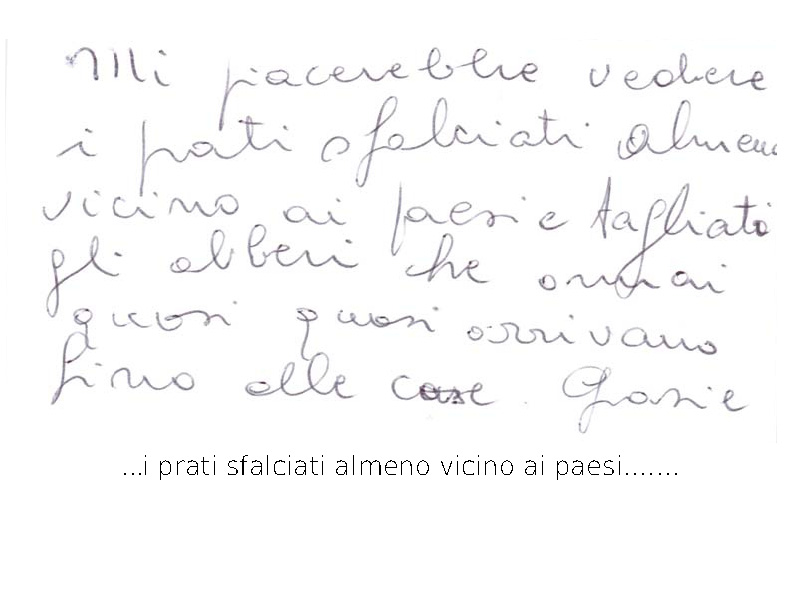 Mi piacerebbe vedere
i prati sfalciati almeno
vicino ai paesi e tagliati
gli alberi che ormai
quasi quasi arrivano
fino alle case. Grazie
...i prati sfalciati almeno vicino ai paesi.......